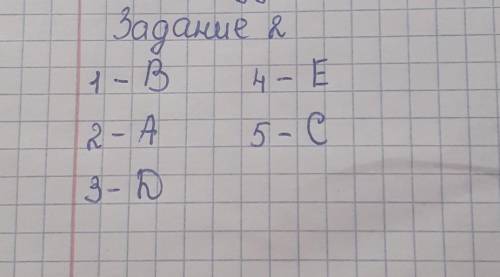 Задание 2
1 - B 4 - E
2 - A 5 - C
3 - D